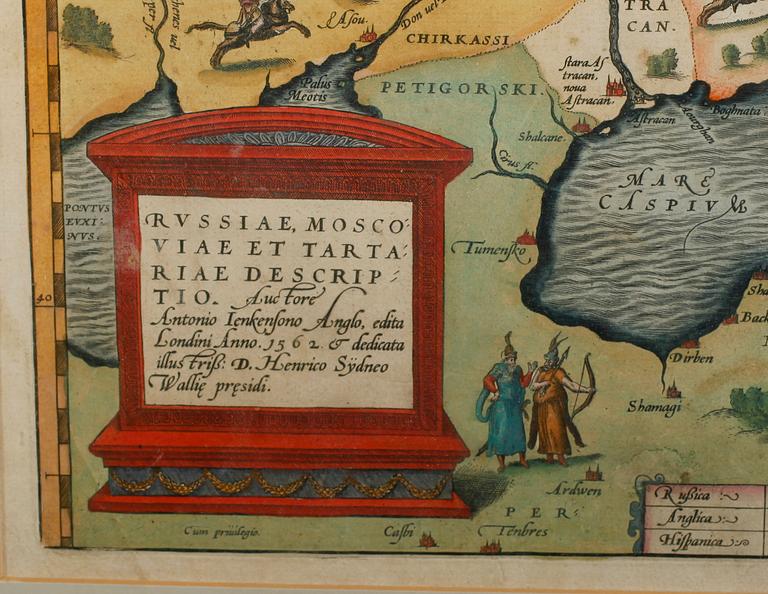 Don uel
Asou.
CHIRKASSI
TRA
CAN.
Palus
Meotis
PETIGORSKI.
stara As
tracan.
noua
Astracan.
Astracan
Boghnata
Shalcane.
Cirus fl.
MARE
CASPIVM
PONTVS
EVXI⸗
NVS.
RVSSIAE, MOSCO⸗
VIAE ET TARTA⸗
RIAE DESCRIP⸗
TIO. Auctore
Antonio Ienkensono Anglo, edita
Londini Anno. 1562. & dedicata
illustriß: D. Henrico Sÿdneo
Wallię pręsidi.
Tumensko
40
Dirben
Shamagi
Ardwen
PER⸗
Tenbres
Casbi
Cum priuilegio.
Rußica
Anglica
Hispanica